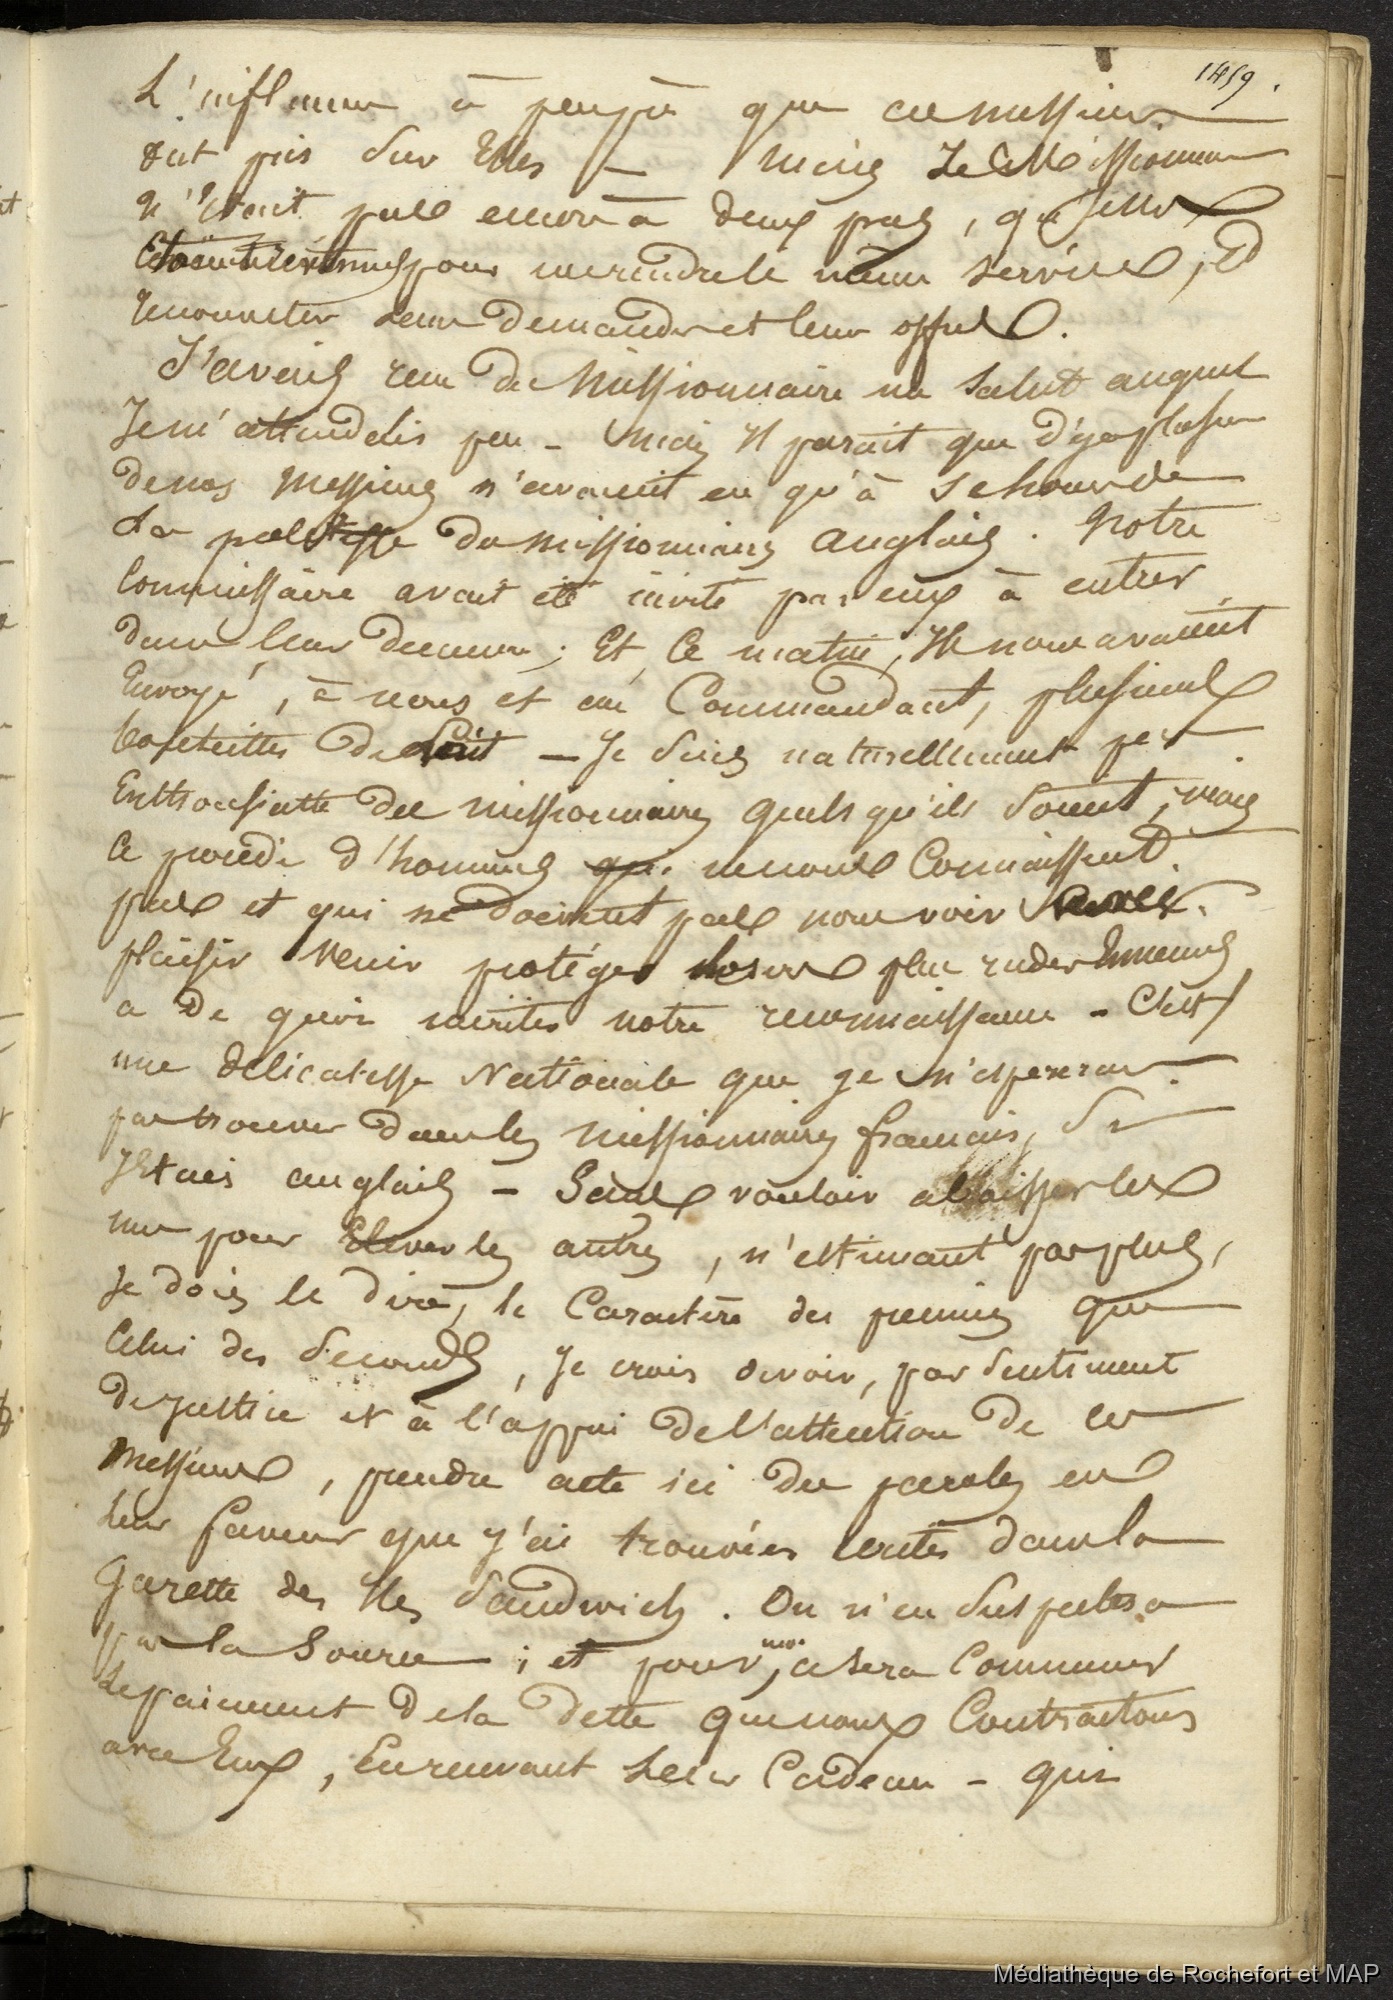 1459.
L'influence à peu près que ces messieurs
ont pris sur Elles — Mais Le Missionnaire
n'était pas encore à deux pas, qu'elles
étaient revenues pour me rendre le même service, Et
renouveler leur demandes et leur offres.
J'avais reçu du Missionnaire un salut auquel
Je m'attendais peu — Mais Il parait que déja plusieurs
de nos Messieurs n'avaient eu qu'à se louer de
la politesse des missionnaires anglais. Notre
Commissaire avait été invité par eux à entrer
dans leur demeure; Et Ce matin, Ils nous avaient
Envoyé, à nous et au Commandant, plusieurs
bouteilles de Lait — Je suis naturellement peu
Enthousiaste des missionnaires quels qu'ils soient, mais
Ce procédé d'hommes qui ne nous Connaissent
pas et qui ne doivent pas nous voir avec
plaisir venir protéger leurs plus rudes Ennemis
a de quoi mériter notre reconnaissance — C'est
une délicatesse Nationale que je n'espererais
pas trouver dans les missionnaires français, Si
J'étais anglais — Sans vouloir abaisser les
uns pour Elever les autres, n'estimant pas plus,
Je dois le dire, le Caractère des premiers que
Celui des Seconds, Je crois devoir, par sentiment
de justice et à l'appui de l'attention de ces
Messieurs, prendre acte ici des paroles en
leur faveur que j'ai trouvées écrites dans la
Gazette des Iles Sandwich. On n'en suspectera
pas la Source; et pour moi, ce sera Commencer
le paiement de la dette que nous Contractons
avec Eux, En recevant Leur Cadeau — qui
Médiathèque de Rochefort et MAP